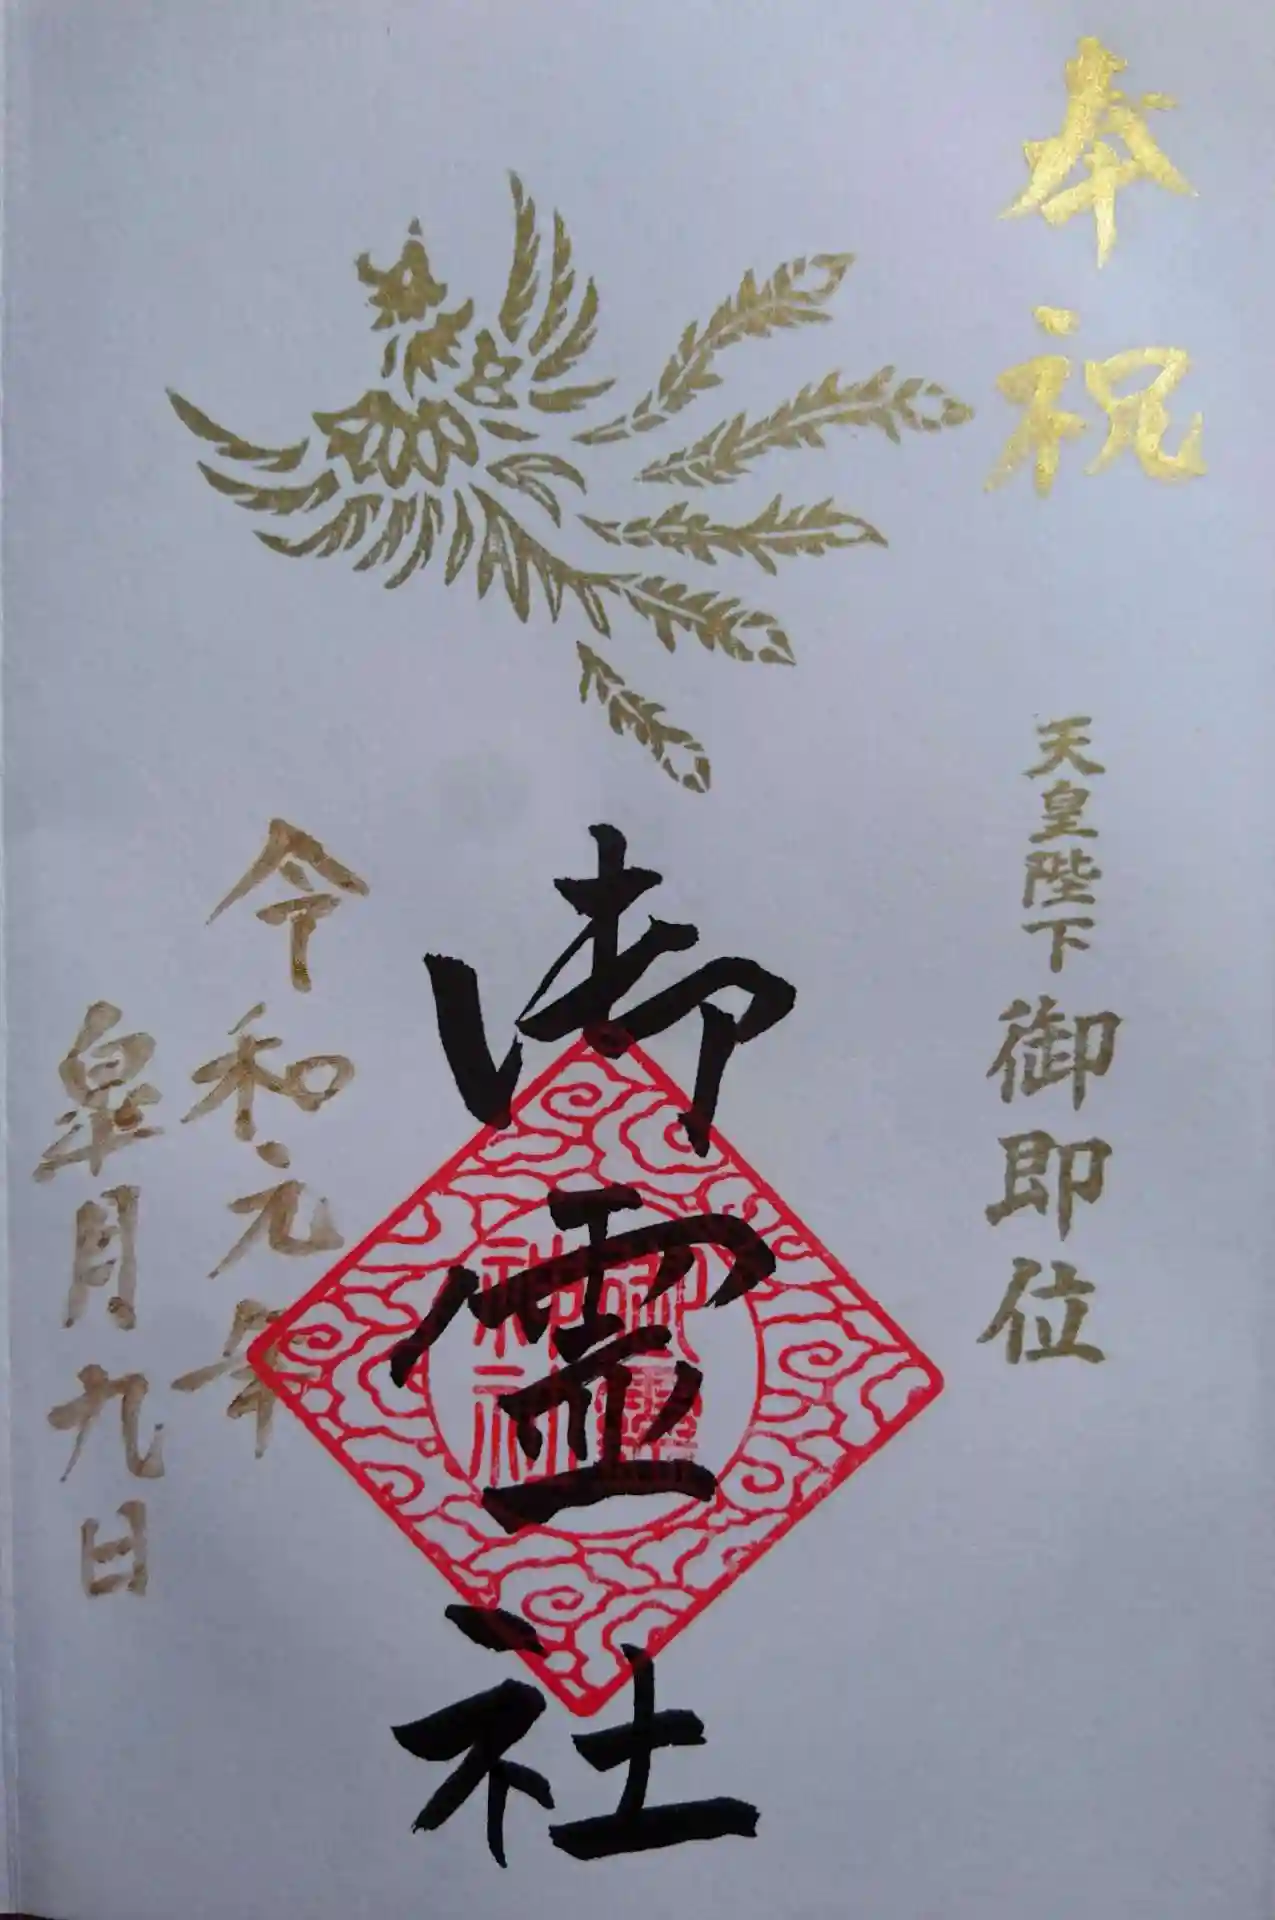 奉祝
天皇陛下御即位
御霊社
令和元年
皐月九日